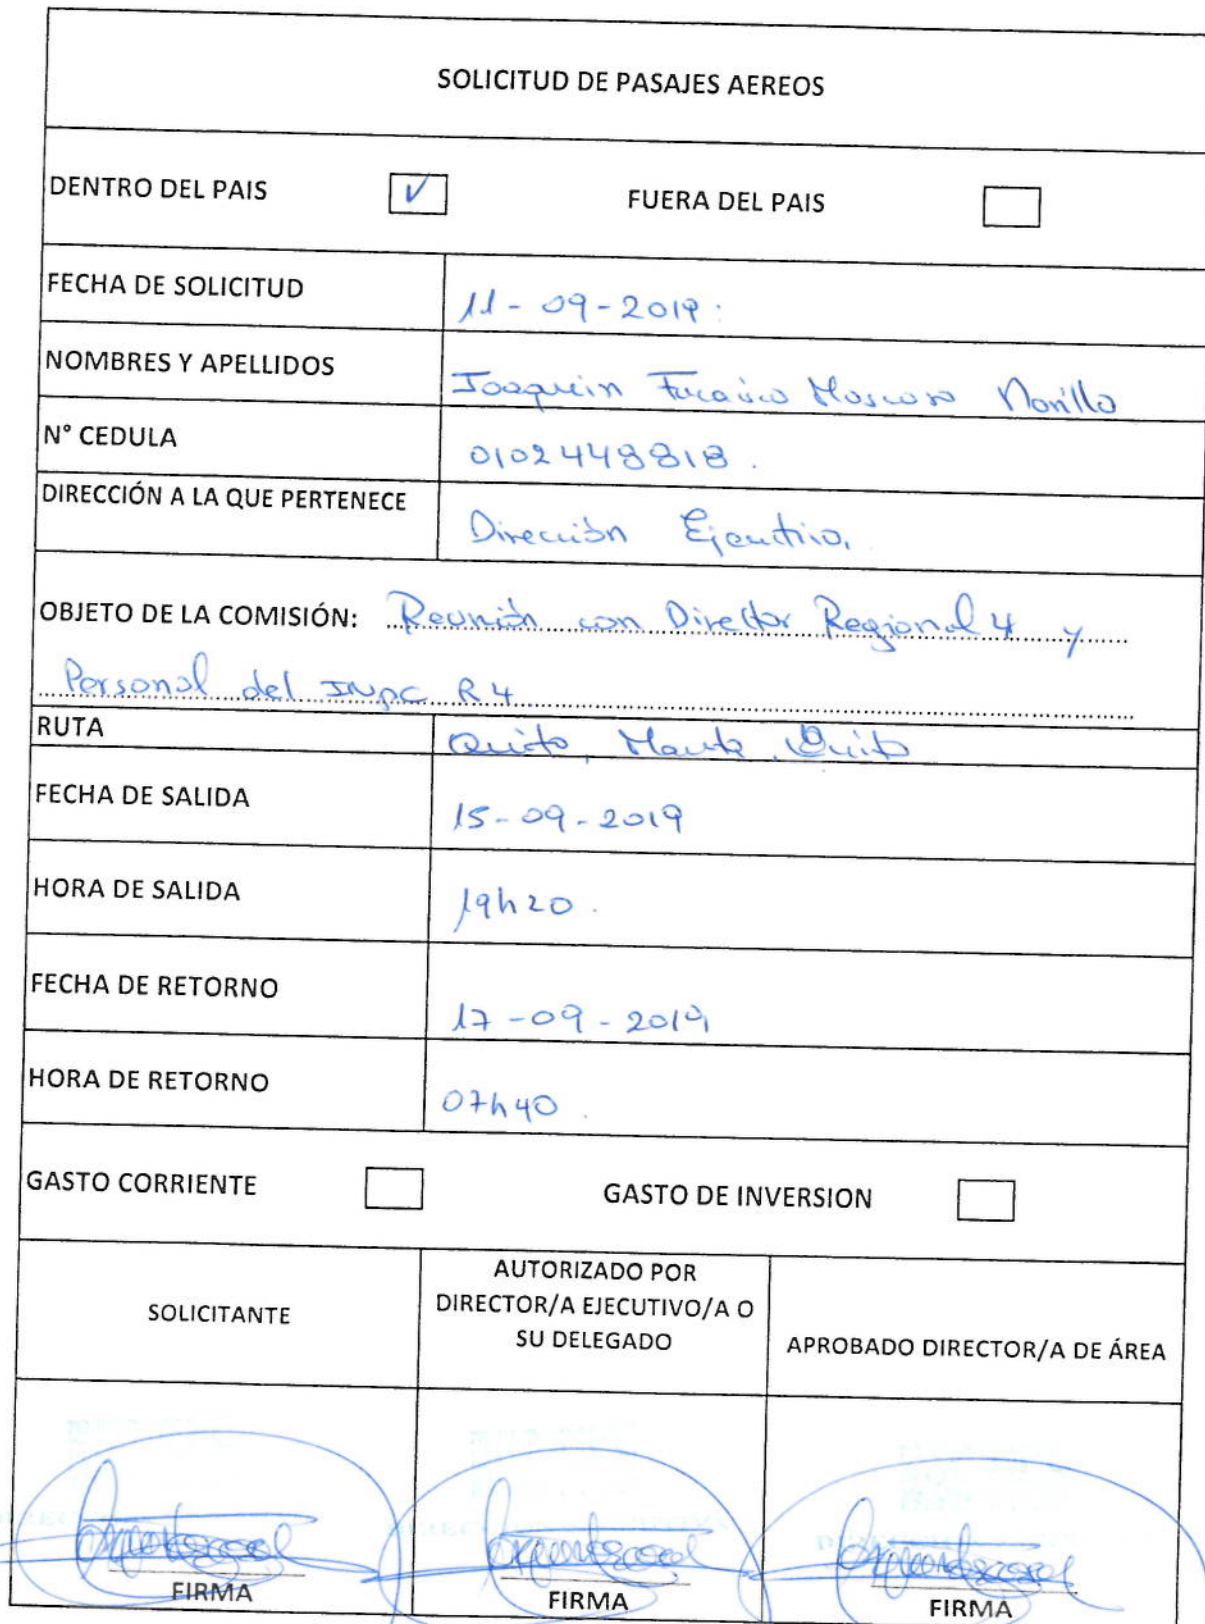 SOLICITUD DE PASAJES AEREOS
DENTRO DEL PAIS ✓ FUERA DEL PAIS
FECHA DE SOLICITUD 11-09-2019.
NOMBRES Y APELLIDOS Joaquin Moscoso Novillo
N° CEDULA 0102448818.
DIRECCIÓN A LA QUE PERTENECE Dirección Ejecutiva.
OBJETO DE LA COMISIÓN: Reunión con Director Regional 4 y
Personal del INPC R4
RUTA Quito, Manta, Quito
FECHA DE SALIDA 15-09-2019
HORA DE SALIDA 19h20.
FECHA DE RETORNO 17-09-2019
HORA DE RETORNO 07h40.
GASTO CORRIENTE GASTO DE INVERSION
SOLICITANTE
AUTORIZADO POR
DIRECTOR/A EJECUTIVO/A O
SU DELEGADO
APROBADO DIRECTOR/A DE ÁREA
FIRMA FIRMA FIRMA